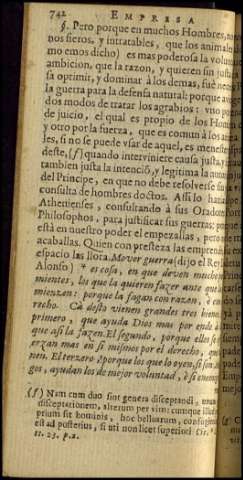 742 EMPRESA
§. Pero porque en muchos Hombres, no me-
nos fieros, y intratables, que los animales
mo emos dicho) es mas poderosa la volun
ambicion, que la razon, y quieren sin justa
sa oprimir, y dominar á los demas, fue
la guerra para la defensa natural: porque
dos modos de tratar los agravios: vno por
de juicio, el qual es propio de los Hom
y otro por la fuerza, que es comun à los ani
les, si no se puede vsar de aquel, es menester
deste, (f) quando interviniere causa justa,
tambien justa la intenció, y legitima la
del Principe, en que no debe resolverse sin
consulta de hombres doctos. Assi lo
Athenienses, consultando à sus Orador
Philosophos, para justificar sus guerras; porque
está en nuestro poder el empezallas, pero
acaballas. Quien con presteza las emprende
espacio las llora. Mover guerra (dijo el Rey
Alonso) es cosa, en que deven much
mientes, los que la quieren fazer ante que
miençan: porque la fagan con razon, è
recho. Cà desto vienen grandes tres bienes
primero, que ayuda Dios mas por ende à
que assi la fazen. El segundo, porque ellos se
erzan mas en si mismos por el derecho, que
nen. El tercero, porque los que lo oyen, si son
gos, ayudan los de mejor voluntad, è si enemi
(f) Nam cum duo sint genera disceptandi, unum
disceptationem, alterum per vim: cumque illud
prium sit hominis, hoc belluarum, confugien
est ad posterius, si uti non licet superiori